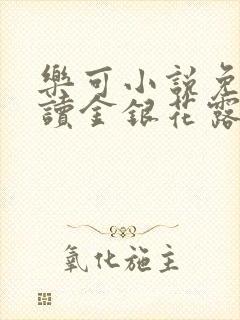 樂可小說免
讀金銀花露
氧化施主